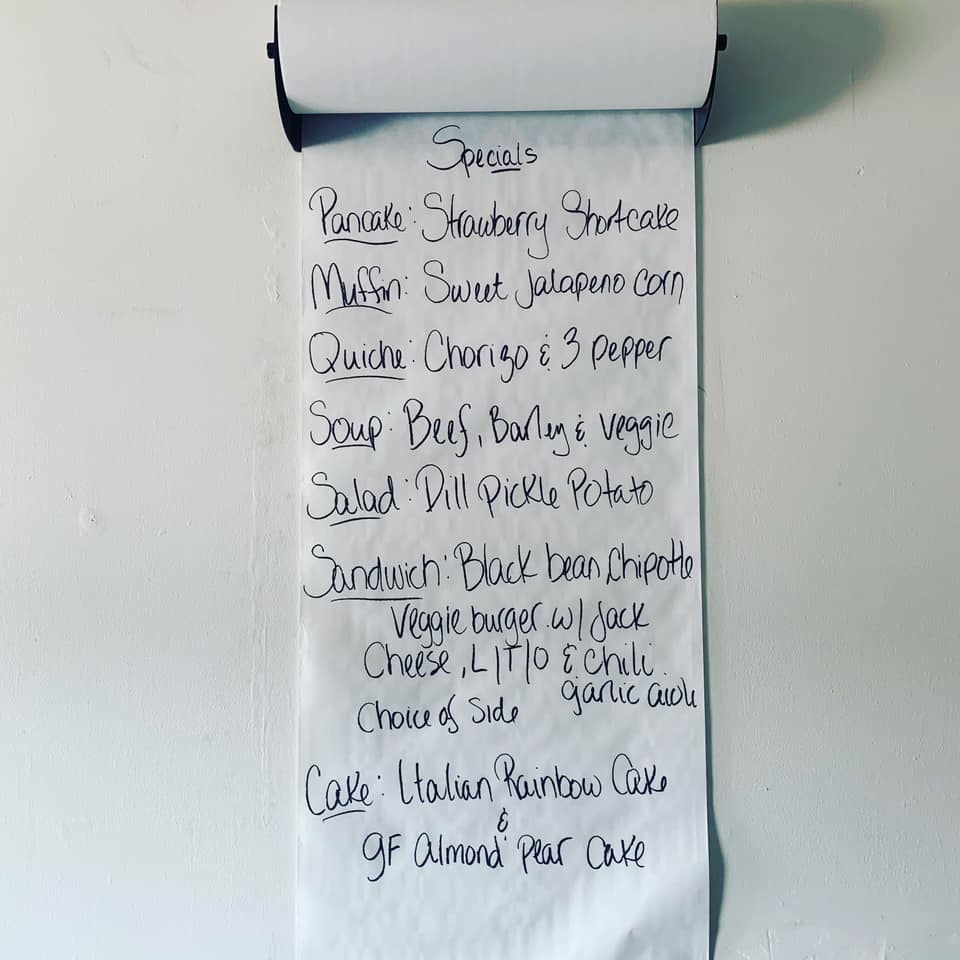 Specials
Pancake: Strawberry Shortcake
Muffin: Sweet Jalapeno Corn
Quiche: Chorizo & 3 Pepper
Soup: Beef, Barley & Veggie
Salad: Dill Pickle Potato
Sandwich: Black bean, Chipotle
Veggie burger w/ Jack
Cheese, L/T/O & Chili
garlic aioli
Choice of Side
Cake: Italian Rainbow Cake
&
GF Almond Pear Cake